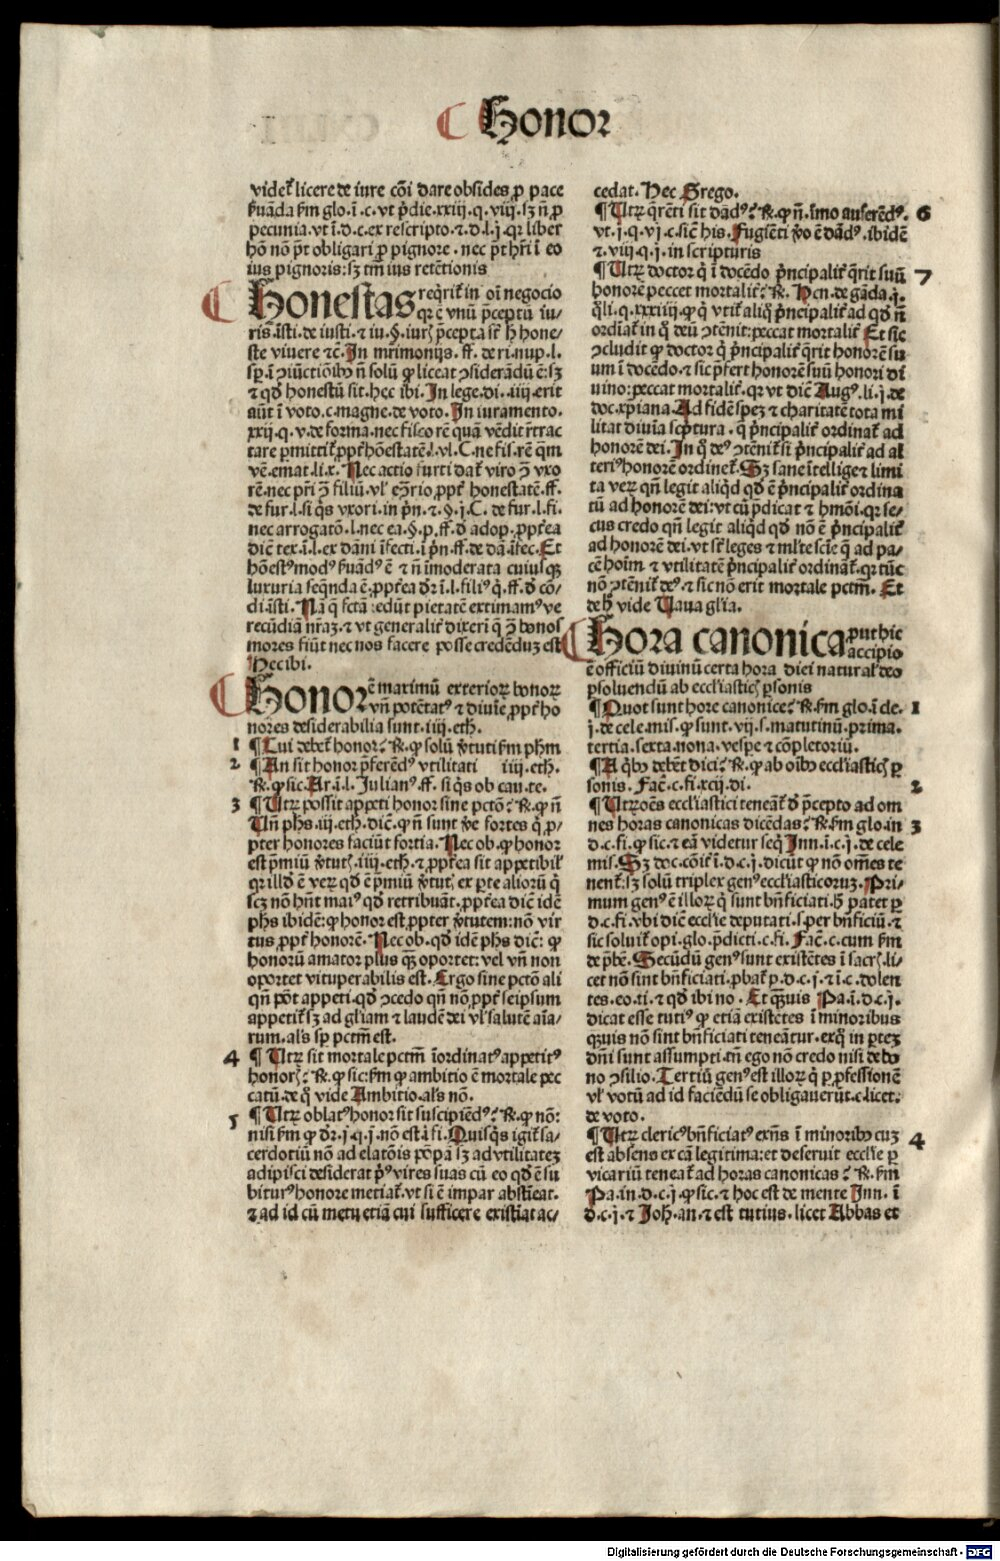 Honor
videt̄ licere de iure cōi dare obsides ꝓ pace
ẜuāda ẜm glo.ī.c.vt p̄die.xxiij.q.viij.sꝫ n̄ ꝓ
pecunia.vt ī.d.c.ex rescripto.⁊.d.l.j.qr liber
hō nō pt̄ obligari ꝓ pignore.nec pt̄ hr̄i ī eo
ius pignoris:sꝫ tm̄ ius retētionis
Honestas req̄rit̄ in oī negocio
qr ē vnū p̄ceptū iu/
ris.ī.sti.de iusti.⁊ iu.§.iurꝭ p̄cepta st̄ h̄ hone/
ste viuere ⁊c̄.In mr̄imonijs.ff.de ri.nup.l.
sꝑ.ī ↄiūctiōibꝰ n̄ solū ꝙ liceat ↄsiderādū ē:sꝫ
⁊ qd̄ honestū sit.hec ibi.In lege.di.iiij.erit
aūt ī voto.c.magne.de voto.In iuramento.
xxij.q.v.de forma.nec fisco rē quā vēdit r̄trac
tare pmittit̄ ꝓpt̄ hōestatē.l.vl.C.ne fis.rē qm̄
vē.emat.li.x.Nec actio furti dat̄ viro ↄ̄ vxo
rē.nec pr̄i ↄ̄ filiū.vl' eↄ̄rio ꝓpt̄ honestatē.ff.
de fur.l.si q̄s vxori.in pn̄.⁊.§.j.C.de fur.l.fi.
nec arrogatō.l.nec ea.§.p.ff.d̄ adop.ꝓpt̄ea
diē tex.ī.l.ex dāni īfecti.ī pn̄.ff.de dā.īfec.Et
hōestꝰ modꝰ ẜuādꝰ ē ⁊ n̄ īmoderata cuiusqꝫ
luxuria seq̄nda ē.ꝓpt̄ea dr̄ ī.l.filiꝰ q̄.ff.d̄ cō/
di.īsti.Nā q̄ fctā ledūt pietatē extimamꝰ ve
recūdiā nr̄aꝫ.⁊ vt generalit̄ dixeri q̄ ↄ̄ bonos
mores fiūt nec nos facere posse credēduꝫ est
Hec ibi.
Honor ē maximū exterioꝝ bonoꝝ
vn̄ potētatꝰ ⁊ diuie ꝓpt̄ ho
nores desiderabilia sunt.iiij.eth.
1 ¶Cui debet̄ honor? R̄.ꝙ solū v̄tuti ẜm phm̄
2 ¶An sit honor p̄ferēdꝰ vtilitati iiij.eth.
R̄.ꝙ sic.Ar.ī.l.Julianꝰ.ff.si q̄s ob cau.te.
3 ¶Utꝝ possit appeti honor sine pctō? R̄.ꝙ n̄
Un̄ phs.iij.eth.dic̄.ꝙ n̄ sunt v̄e fortes q̄ ꝓ/
pter honores faciūt fortia.Nec ob.ꝙ honor
est p̄miū v̄tutꝭ.iiij.eth.⁊ ꝓpt̄ea sit appetibil'
qr illd̄ ē veꝝ qd̄ ē p̄miū v̄tutꝭ ex pte alioꝝ q̄
scꝫ nō hn̄t maiꝰ qd̄ retribuāt.ꝓpt̄ea dic̄ idē
phs ibidē:ꝙ honor est ꝓpter v̄tutem:nō vir
tus ꝓpt̄ honorē.Nec ob.qd̄ idē phs dic̄: ꝙ
honorū amator plus qꝫ oportet: vel vn̄ non
oportet vituperabilis est.Ergo sine pctō ali
qn̄ pōt appeti.qd̄ ↄcedo qn̄ nō ꝓpt̄ seipsum
appetit̄ sꝫ ad gl'iam ⁊ laudē dei vl' salutē aīa/
rum.al's sꝑ pctm̄ est.
4 ¶Utꝝ sit mortale pctm̄ īordinatꝰ appetitꝰ
honorꝭ? R̄.ꝙ sic:ẜm ꝙ ambitio ē mortale pec
catū.de q̄ vide Ambitio.al's nō.
5 ¶Utꝝ oblatꝰ honor sit suscipiēdꝰ? R̄.ꝙ nō:
nisi ẜm ꝙ dr̄.j.q.j.nō est ī fi.Quisq̄s igit̄ sa/
cerdotiū nō ad elatōis pōpā sꝫ ad vtilitateꝫ
adipisci desiderat pꝰ vires suas cū eo qd̄ ē su
biturꝰ honore metiat̄.vt si ē impar abstīeat.
⁊ ad id cū metu etiā cui sufficere existīat ac/
cedat.Hec Grego.
¶Utꝝ q̄rēti sit dādꝰ? R̄.ꝙ n̄.īmo auferēdꝰ. 6
vt.j.q.vj.c.sic̄ his.Fugiēti v̄o ē dādꝰ.ibidē
⁊.viij.q.j.in scripturis
¶Utꝝ doctor q̄ ī docēdo p̄ncipalit̄ q̄rit suū 7
honorē peccet mortalit̄? R̄. Hen.de gāda.q.
q̄li.q.xxiiij.ꝙ q̄ vtit̄ aliq̄ p̄ncipalit̄ ad qd̄ n̄
ordiat̄ in q̄ deū ↄtēnit:peccat mortalit̄ Et sic
ↄcludit ꝙ doctor q̄ p̄ncipalit̄ q̄rit honorē su
um ī docēdo.⁊ sic p̄fert honorē suū honori di
uino:peccat mortalit̄.qr vt dic̄ Augꝰ.li.j.de
doc.xpiana.Ad fidē spez ⁊ charitatē tota mi
litat diuia sc̄ptura.q̄ p̄ncipalit̄ ordinat̄ ad
honorē dei.In q̄ deꝰ ↄtēnit̄ si p̄ncipalit̄ ad al
teriꝰ honorē ordinet̄.Sꝫ sane ītellige ⁊ limi
ta veꝝ qn̄ legit aliqd̄ qd̄ ē p̄ncipalit̄ ordina
tū ad honorē dei:vt cū p̄dicat ⁊ hmōi.qr se/
cus credo qn̄ legit aliqd̄ qd̄ nō ē p̄ncipalit̄
ad honorē dei.vt st̄ leges ⁊ ml'te scīe q̄ ad pa/
cē hoīm ⁊ vtilitatē p̄ncipalit̄ ordinat̄.qr tūc
nō ↄtēnit̄ deꝰ.⁊ sic nō erit mortale pctm̄. Et
de h̄ vide Uana gl'ia.
Hora canonica put hic
accipio
ē officiū diuinū certa hora diei natural' deo
psoluendū ab eccl'iasticꝭ ꝑsonis
¶Quot sunt hore canonice? R̄.ẜm glo.ī cle. 1
j.de cele.mis.ꝙ sunt.vij.s.matutinū.prima.
tertia.sexta.nona.vesꝑe ⁊ cōpletoriū.
¶A q̄bꝰ debēt dici? R̄.ꝙ ab oībꝰ eccl'iasticꝭ ꝑ
sonis.Fac̄.c.fi.xcij.di. 2
¶Utꝝ oēs eccl'iastici teneāt̄ d̄ p̄cepto ad om
nes horas canonicas dicēdas? R̄.ẜm glo.in 3
d.c.fi.ꝙ sic.⁊ eā videtur seq̄ Inn.ī.c.j.de cele
mis.Sꝫ doc.cōit̄ ī.d.c.j.dicūt ꝙ nō om̄es te
nent̄:sꝫ solū triplex genꝰ eccl'iasticoruꝫ.Pri/
mum genꝰ ē illoꝝ q̄ sunt bn̄ficiati.h̄ patet ꝑ
d.c.fi.vbi dic̄ eccl'ie deputati.s.per bn̄ficiū.⁊
sic soluit̄ opi.glo.p̄dicti.c.fi.Fac̄.c.cum ẜm
de p̄bē.Secūdū genꝰ sunt existētes ī sacrꝭ.li-
cet nō sint bn̄ficiati.ꝓbat̄ ꝑ.d.c.j.⁊ ī.c.dolen
tes.eo.ti.⁊ qd̄ ibi no.Et qꝫuis Pa.ī.d.c.j.
dicat esse tutiꝰ ꝙ etiā existētes ī minoribus
qꝫuis nō sint bn̄ficiati teneātur.exq̄ in ꝑteꝫ
dn̄i sunt assumpti.tn̄ ego nō credo nisi de bo
no ↄsilio.Tertiū genꝰ est illoꝝ q̄ ꝑ ꝓfessionē
vl' votū ad id faciēdū se obligauerūt.c.licet.
de voto.
¶Utꝝ clericꝰ bn̄ficiatꝰ exn̄s ī minoribꝰ cuꝫ 4
est absens ex cā legitima:et deseruit eccl'ie ꝑ
vicariū teneat̄ ad horas canonicas? R̄.ẜm
Pa.in.d.c.j.ꝙ sic.⁊ hoc est de mente Inn. ī
d.c.j.⁊ Joh.an.⁊ est tutius.licet Abbas et
Digitalisierung gefördert durch die Deutsche Forschungsgemeinschaft - DFG